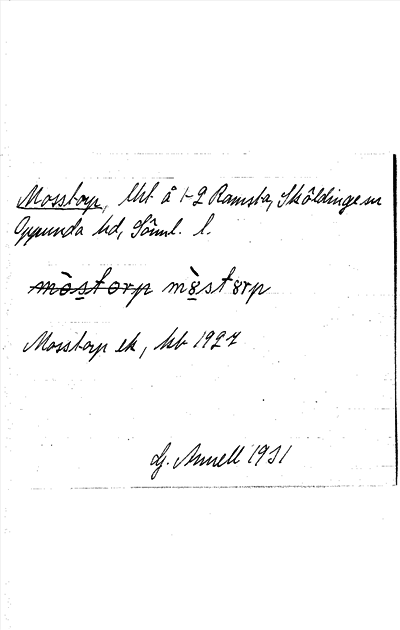 Mosstorp, lht å 1-2 Ramsta, Sköldinge sn
Oppunda hd, Söml. l.
mòstorp mòstorp
Mosstorp ek, kb 1927
G. Annell 1931